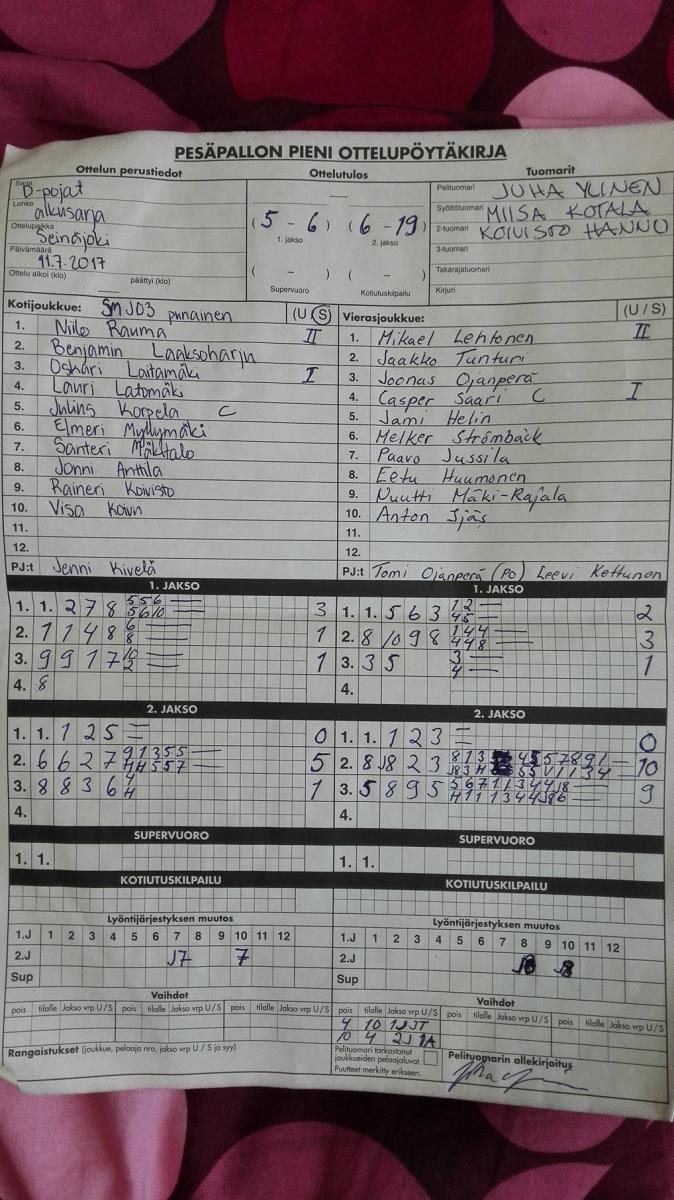 PESÄPALLON PIENI OTTELUPÖYTÄKIRJA
Ottelun perustiedot
Sarja D-pojat
Lohko alkusarja
Ottelupaikka Seinäjoki
Päivämäärä 11.7.2017
Ottelu alkoi (klo) päättyi (klo)
Ottelutulos
(5 - 6) (6 - 19)
1. jakso 2. jakso
( - ) ( - )
Supervuoro Kotiutuskilpailu
Tuomarit
Pelituomari JUHA YLINEN
Syöttötuomari MIISA KOTALA
2-tuomari KOIVISTO HANNU
3-tuomari
Takarajatuomari
Kirjuri
Kotijoukkue: SMJ03 punainen (U / S)
1. Niilo Rauma II
2. Benjamin Laaksoharju
3. Oskari Laitamäki I
4. Lauri Latomäki
5. Julius Korpela C
6. Elmeri Myllymäki
7. Santeri Mäkitalo
8. Jonni Anttila
9. Raineri Koivisto
10. Visa
11.
12.
PJ:t Jenni Kivelä
Vierasjoukkue: (U / S)
1. Mikael Lehtonen II
2. Jaakko Tunturi
3. Joonas Ojanperä
4. Casper Saari C I
5. Jami Helin
6. Melker Strömbäck
7. Paavo Jussila
8. Eetu Huumonen
9. Nuutti Mäki-Rajala
10. Anton Ijäs
11.
12.
PJ:t Tomi Ojanperä (PO) Leevi Kettunen
1. JAKSO
1. 1. 2 7 8 5 5 6 3
5 6 10
2. 1 1 4 8 6 1
8
3. 9 9 1 7 10 1
2
4. 8
1. JAKSO
1. 1. 5 6 3 1 2 2
4 5
2. 8 10 9 8 1 4 4 3
4 4 8
3. 3 5 3 1
4
4.
2. JAKSO
1. 1. 1 2 5 0
2. 6 6 2 7 9 1 3 5 5 5
H H 5 5 7
3. 8 8 3 6 4 1
H
4.
2. JAKSO
1. 1. 1 2 3 0
2. 8 J8 2 3 8 1 3 4 5 5 7 8 9 1 10
3. 5 8 9 5 5 6 7 1 1 3 4 4 J8 9
H 1 1 1 3 4 4 J8 6
4.
SUPERVUORO
1. 1.
SUPERVUORO
1. 1.
KOTIUTUSKILPAILU
KOTIUTUSKILPAILU
Lyöntijärjestyksen muutos
1.J 1 2 3 4 5 6 7 8 9 10 11 12
2.J J7 7
Sup
Lyöntijärjestyksen muutos
1.J 1 2 3 4 5 6 7 8 9 10 11 12
2.J J8
Sup
Vaihdot
pois tilalle Jakso vrp U/S pois tilalle Jakso vrp U/S pois tilalle Jakso vrp U/S
Vaihdot
pois tilalle Jakso vrp U/S pois tilalle Jakso vrp U/S pois tilalle Jakso vrp U/S
4 10 1J JT
10 4 2J 1A
Rangaistukset (joukkue, pelaaja nro, jakso vrp U / S ja syy)
Pelituomari tarkastanut
joukkueiden pelaajaluvat.
Puutteet merkitty erikseen.
Pelituomarin allekirjoitus